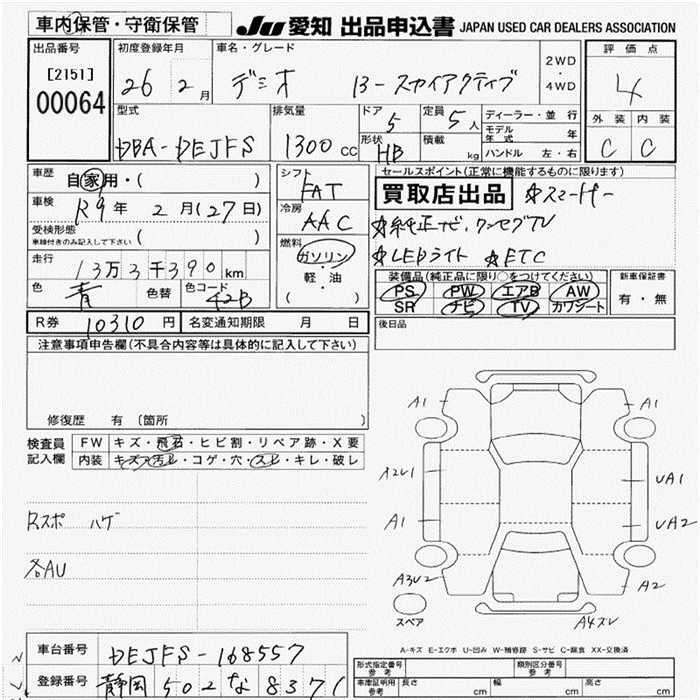 車内保管・守衛保管
JU 愛知 出品申込書 JAPAN USED CAR DEALERS ASSOCIATION
出品番号 [2151] 00064
初度登録年月 26 2月
車名・グレード デミオ 13-スカイアクティブ
2WD・4WD
評価点 4
外装 内装
C C
型式 DBA-DEJFS
排気量 1300 CC
ドア 5
形状 HB
定員 5人
積載 kg
ディーラー・並行
モデル年式 年
ハンドル 左・右
車歴 自家用・( )
車検 R9年 2月(27日)
受検形態 車検付きのみ記入して下さい ( )
走行 13万3千390km
色 青 色替 色コード 42B
シフト FAT
冷房 AAC
燃料 ガソリン・軽・油 ( )
セールスポイント(正常に機能するものに限ります)
買取店出品 ☆スマートキー
☆純正ナビ、ワンセグTV
☆LEDライト ☆ETC
装備品(純正品に限り○をつけてください)
PS PW エアB AW
SR ナビ TV カワシート
新車保証書 有・無
R券 10310 円 名変通知期限 月 日
後日品
注意事項申告欄(不具合内容等は具体的に記入して下さい)
修復歴 有 〔箇所 〕
検査員記入欄
FW キズ・飛石・ヒビ割・リペア跡・X要
内装 キズ・汚レ・コゲ・穴・スレ・キレ・破レ
Rスポ ハゲ
各AU
A1 A1
A2レ1 UA1
A1 UA2
A3U2 A2
スペア A4スレ
A-キズ E-エクボ U-凹み W-補修跡 S-サビ C-腐食 XX-交換済
車台番号 DEJFS-168557
登録番号 静岡 502 な 8371
形式指定番号 参考 類別区分番号 参考
車庫証明用 参考 長さ cm 幅 cm 高さ cm